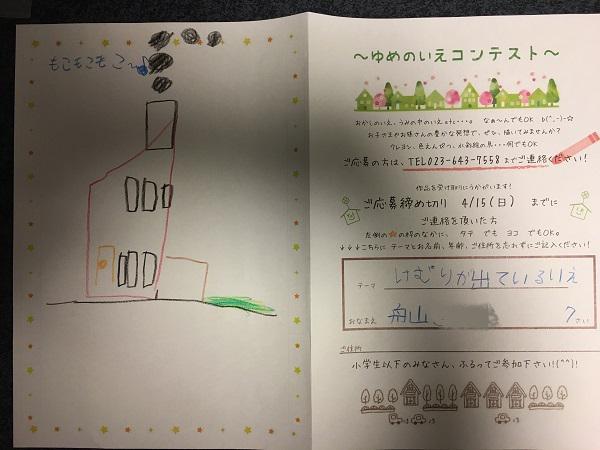 もこもこもこ～♪
～ゆめのいえコンテスト～
おかしのいえ、うみの中のいえetc・・・。 なぁ～んでもOK b(^_-)-☆
お子さまやお孫さんの豊かな発想で、ぜひ、描いてみませんか?
クレヨン、色えんぴつ、水彩絵の具・・・何でもOK
ご応募の方は、TEL023-643-7558までご連絡ください!
作品を受け取りにうかがいます!
ご応募締め切り 4/15(日) までに
ご連絡を頂いた方
左側の★の枠のなかに、タテ でも ヨコ でもOK。
↓↓↓こちらに テーマとお名前、年齢、ご住所を忘れずにご記入ください!
テーマ けむりが出ているいえ
おなまえ 舟山 7さい
ご住所
小学生以下のみなさん、ふるってご参加下さい!(^^)!